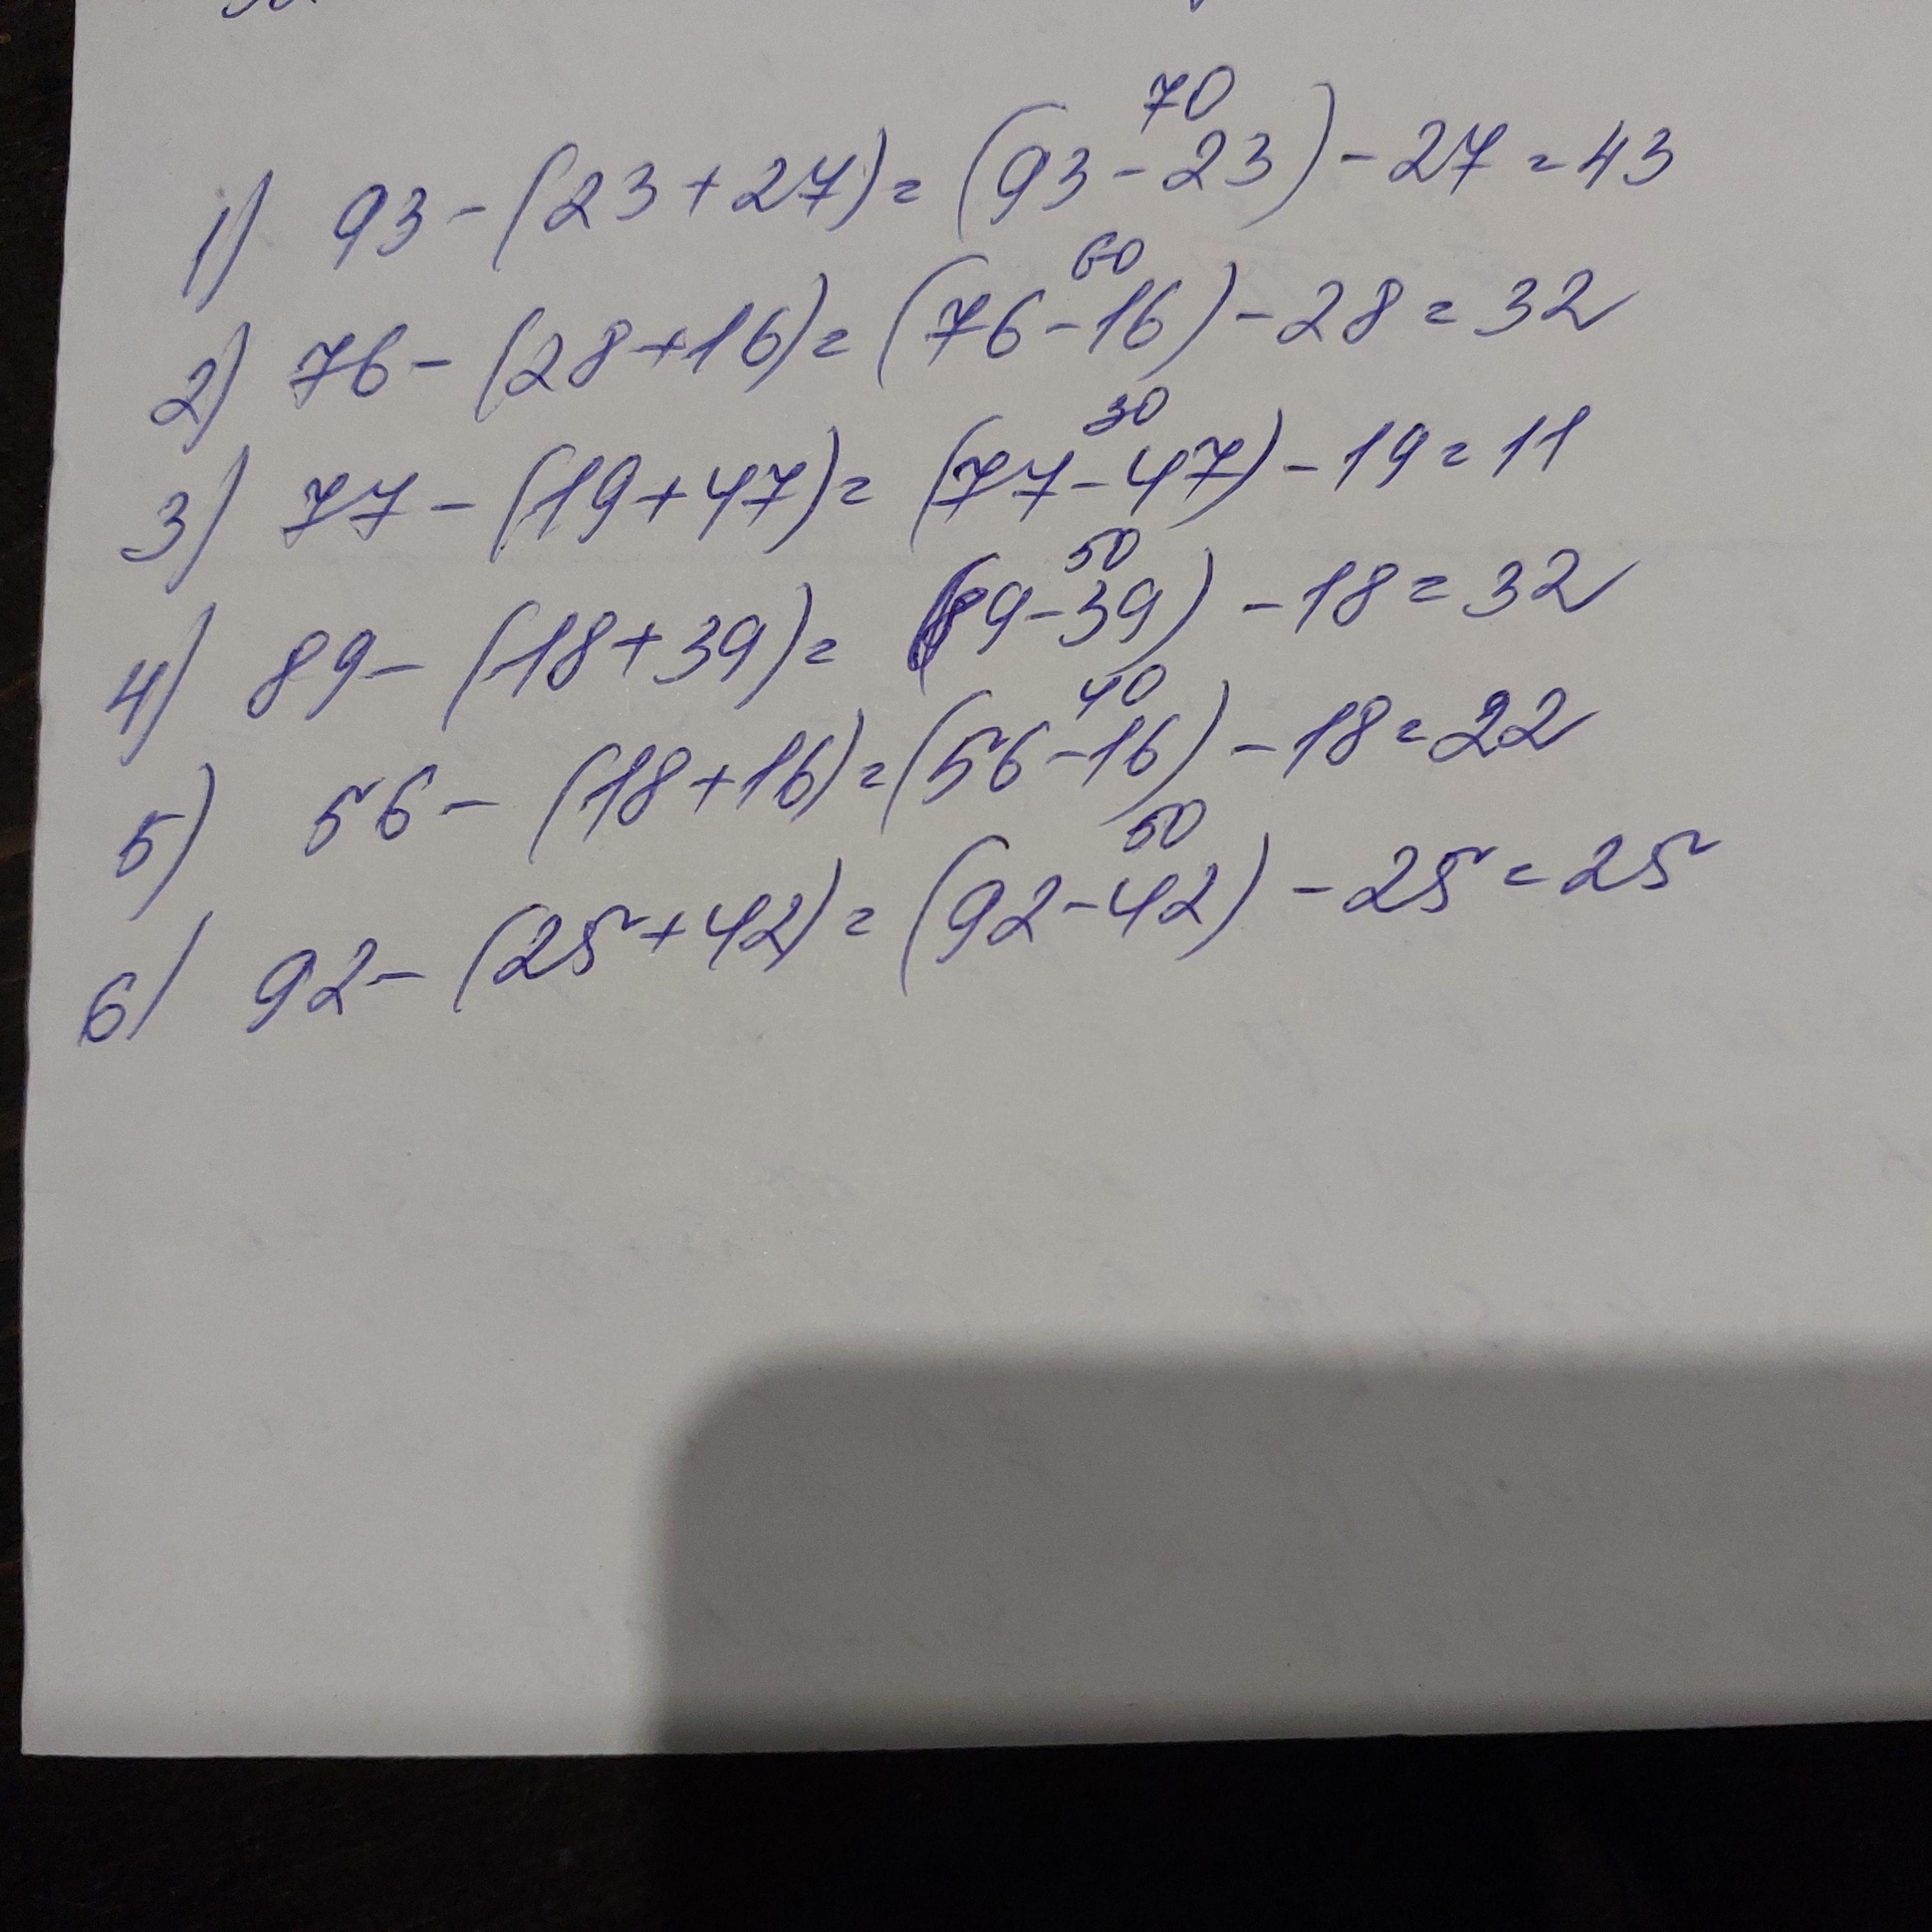 70
1) 93 - (23 + 27) = (93 - 23) - 27 = 43
60
2) 76 - (28 + 16) = (76 - 16) - 28 = 32
30
3) 77 - (19 + 47) = (77 - 47) - 19 = 11
50
4) 89 - (18 + 39) = (89 - 39) - 18 = 32
40
5) 56 - (18 + 16) = (56 - 16) - 18 = 22
50
6) 92 - (25 + 42) = (92 - 42) - 25 = 25